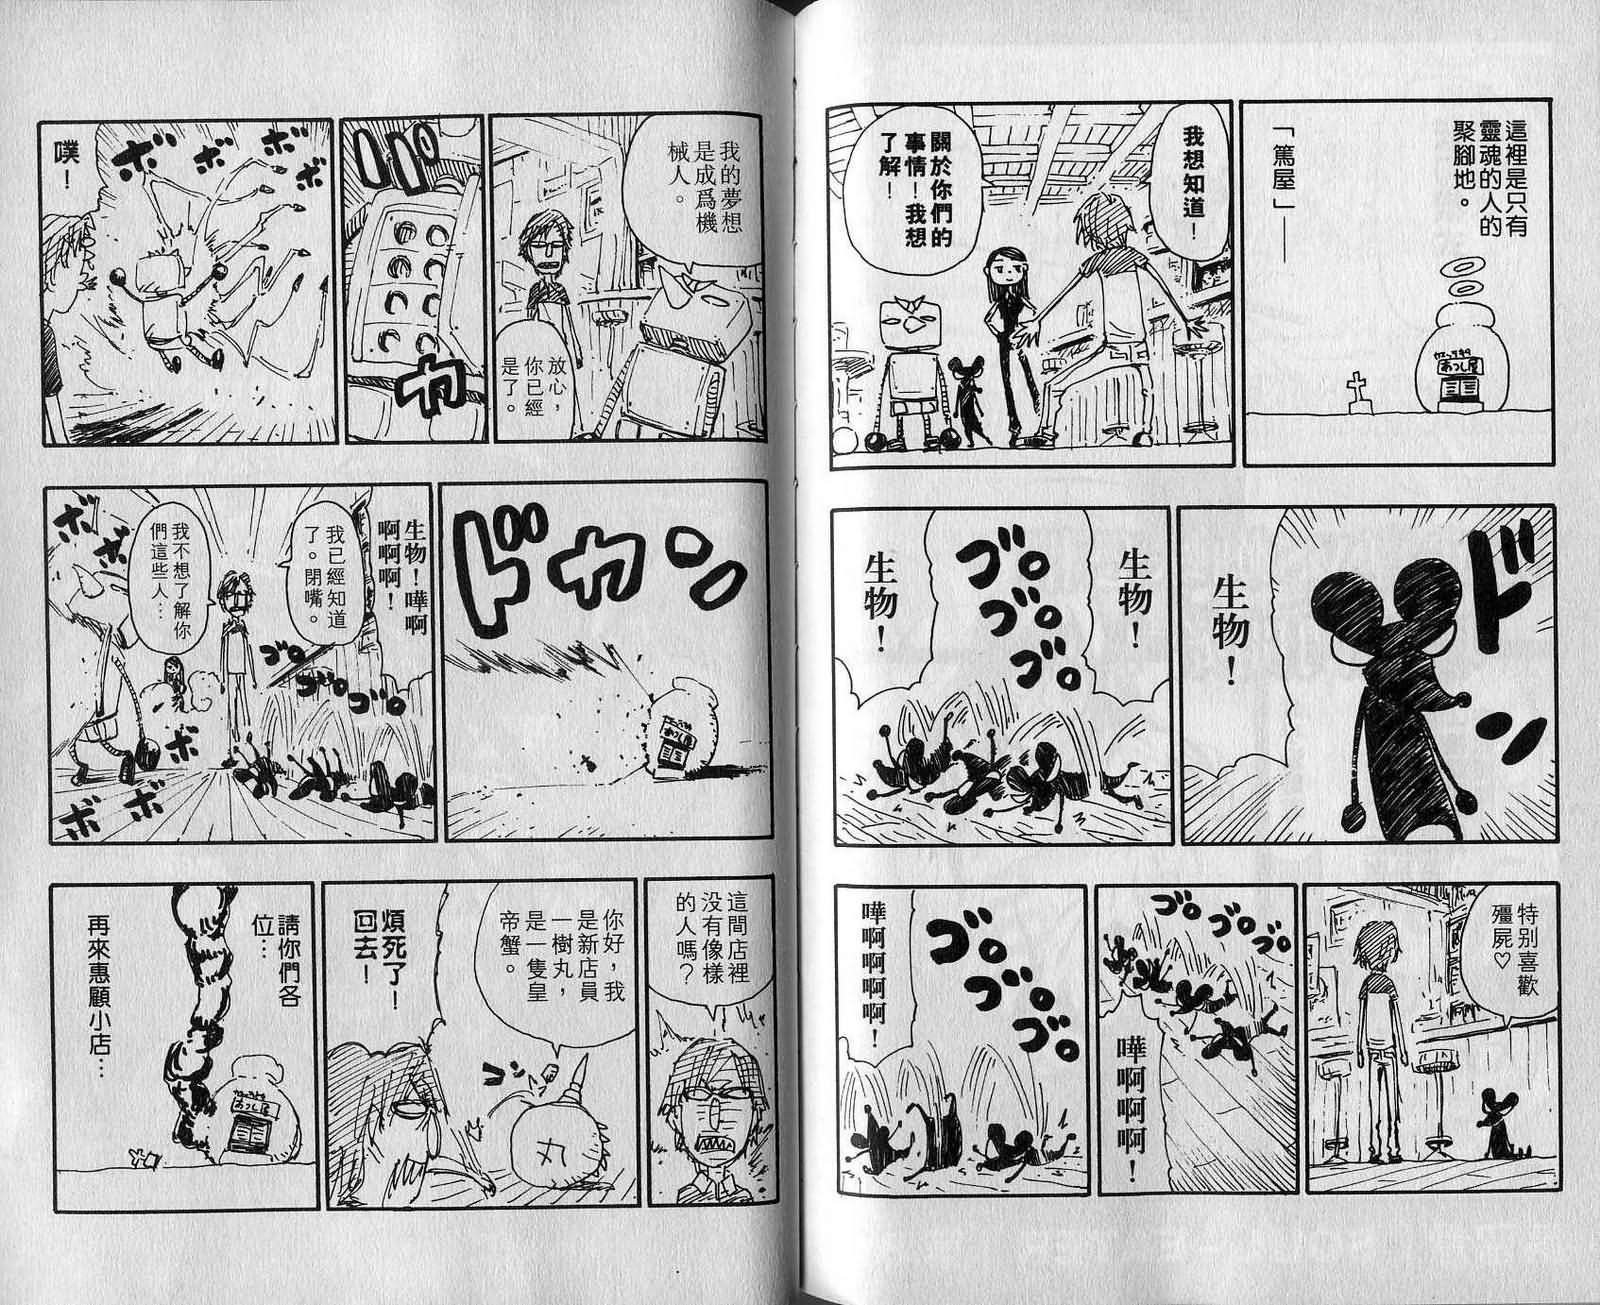 這裡是只有
靈魂的人的
聚腳地。
「篤屋」——
あつし屋
我想知道！
關於你們的
事情！我想
了解！
ドン
生物！
生物！
ゴロ
ゴロ
ゴロ
生物！
特別喜歡
殭屍♡
ゴロ
ゴロ
ゴロ
嘩啊啊啊！
ゴロ
ゴロ
ゴロ
嘩啊啊啊啊！
我的夢想
是成爲機
械人。
放心，
你已經
是了。
パカ
ボ
ボ
ボ
ボ
噗！
ドカン
あつし屋
生物！嘩啊
啊啊啊！
我已經知道
了。閉嘴。
我不想了解你
們這些人…
ゴロ
ゴロ
ゴロ
ボ
ボ
ボ
ボ
ボ
這間店裡
没有像樣
的人嗎？
你好，我
是新店員
一樹丸，
是一隻皇
帝蟹。
コン
丸
煩死了！
回去！
請你們各
位…
再來惠顧小店…
あつし屋